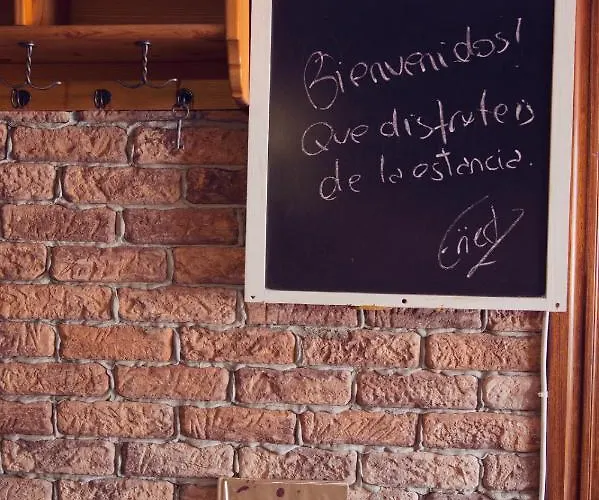 Bienvenidos!
Que disfruteis
de la estancia.